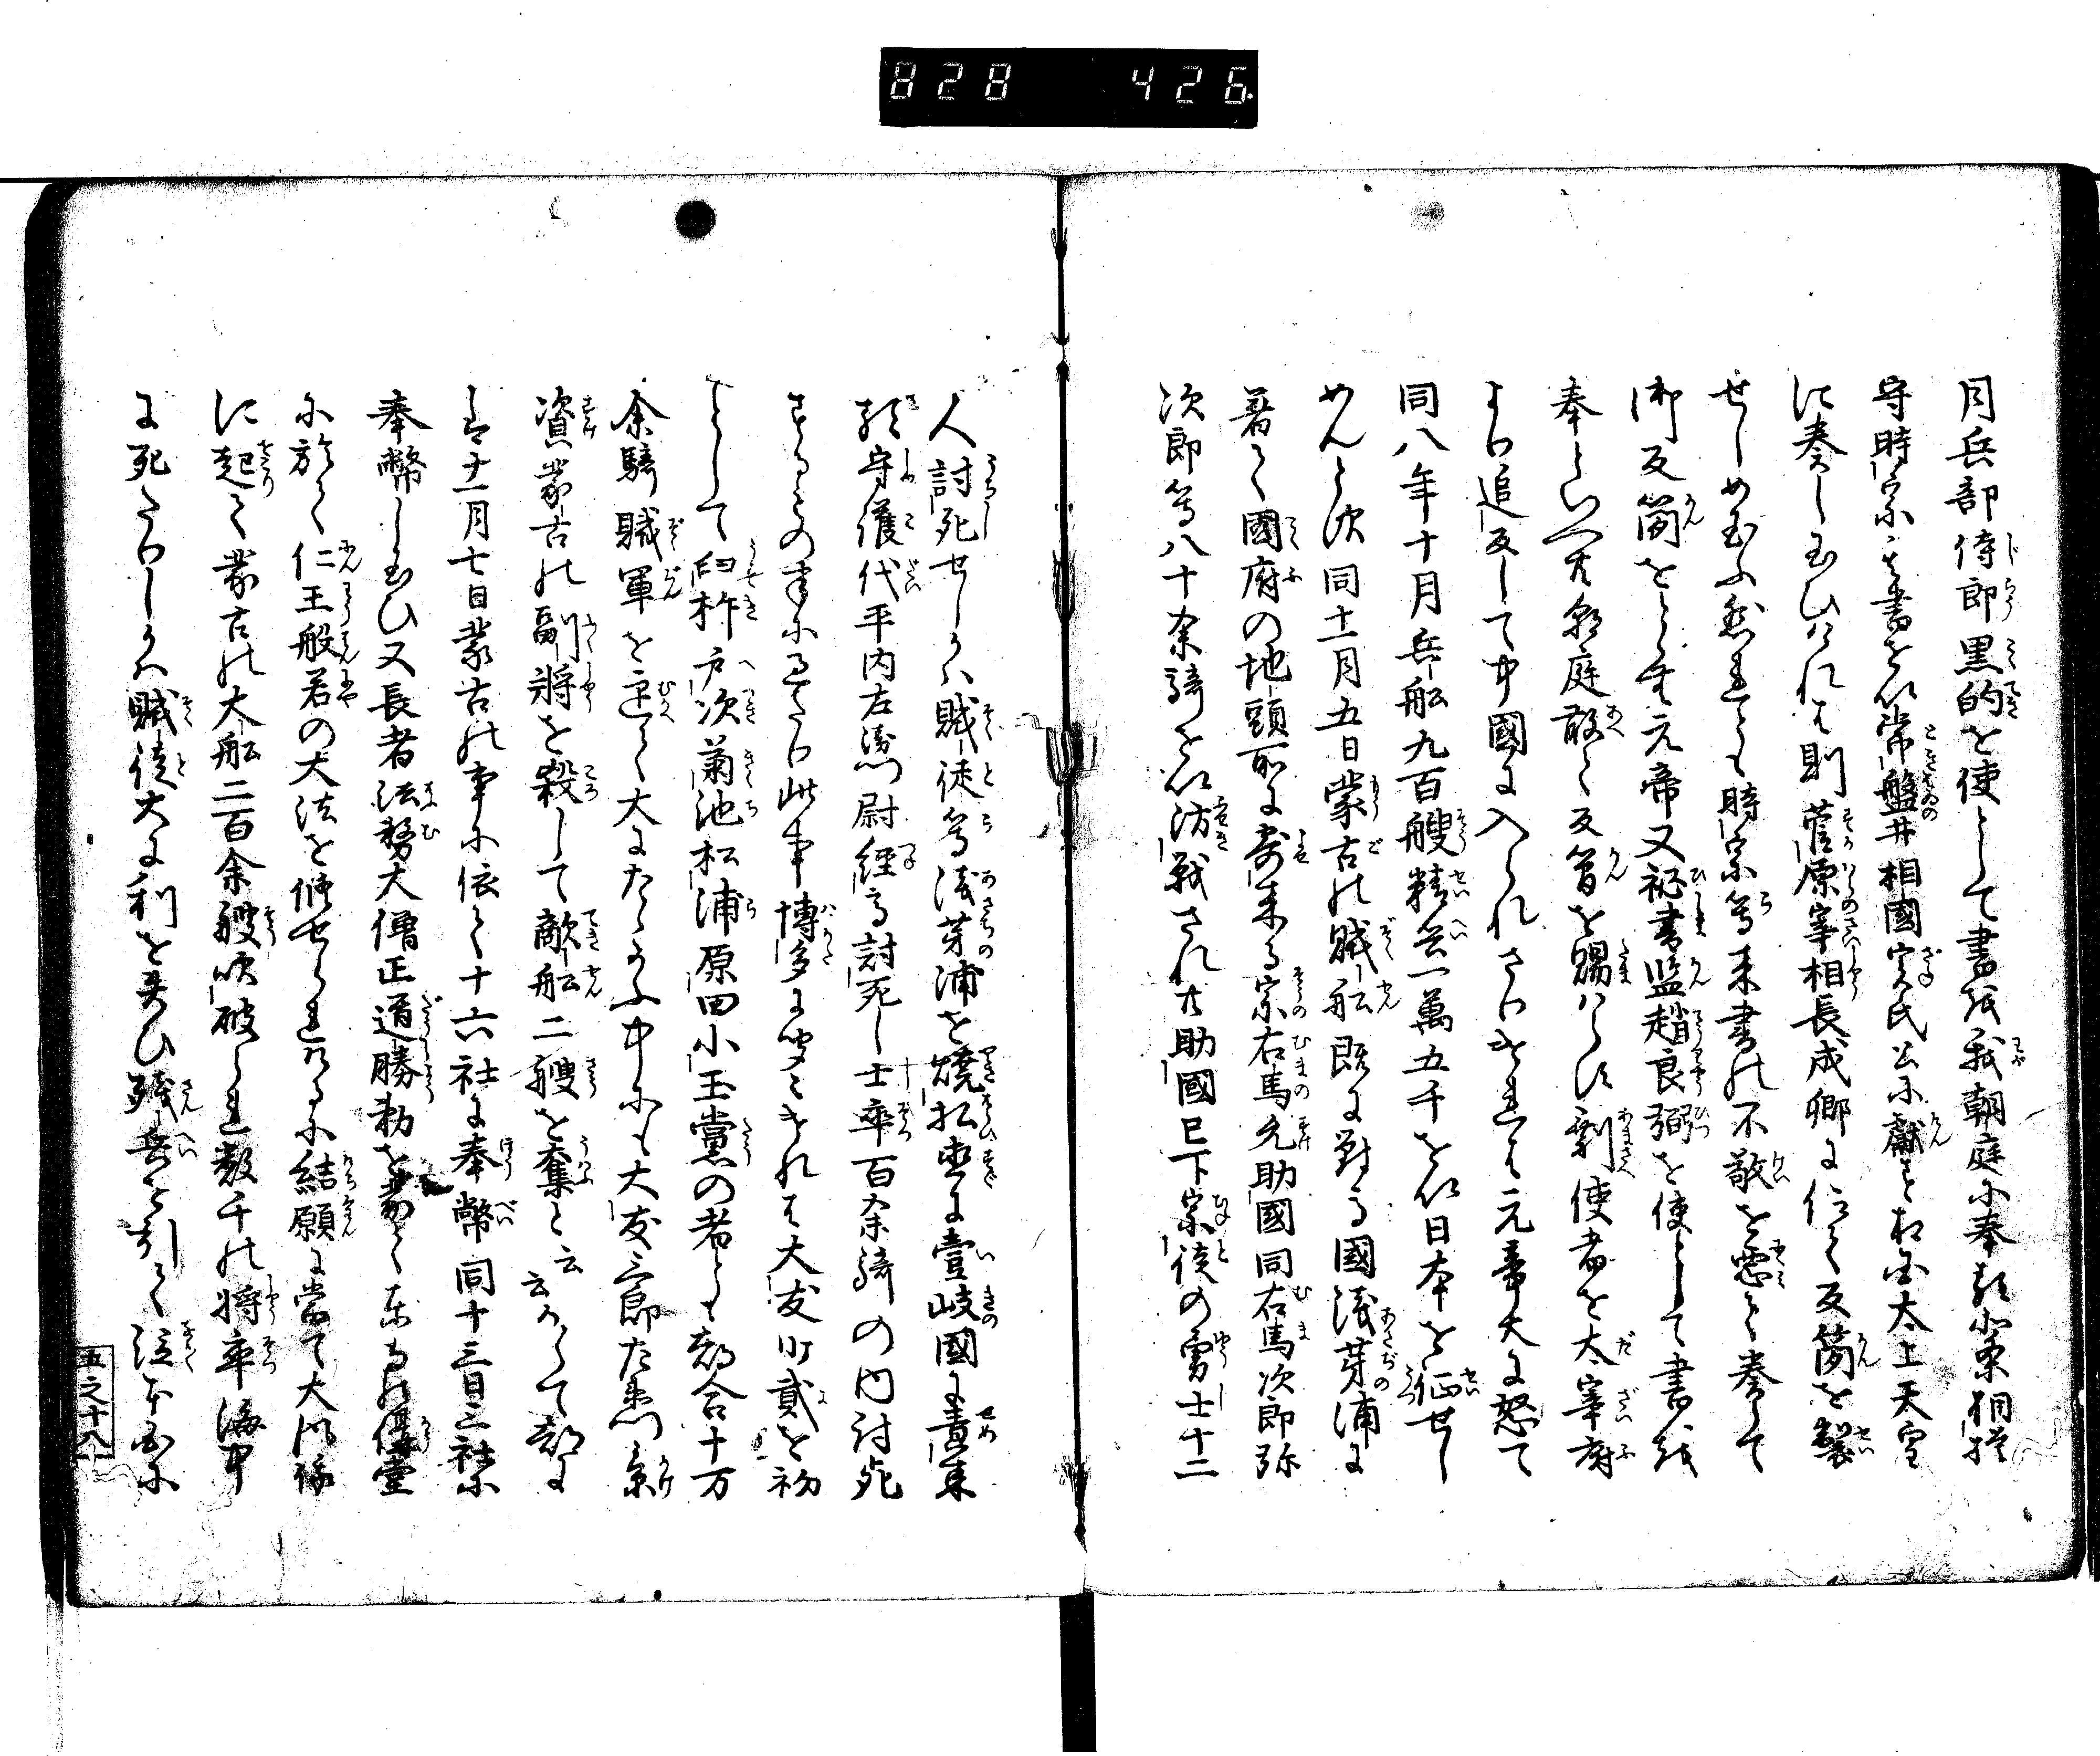 828 426
月兵部侍郎黒的を使として書を我朝庭に奉る北条相模
守時宗其書を以常盤井相國実氏公に献す相国太上天皇
に奏し玉ひけれは則菅原宰相長成卿に仰て反簡を製
せしめ玉ふ然れとも時宗等来書の不敬を悪て奏して
御反簡をとゝむ元帝又祕書監趙良弼を使として書を
奉といへ共朝庭敢て反簡を賜はらす剰使者を太宰府
より追反して中國に入られさりけれは元帝大に怒て
同八年十月兵舩九百艘精兵一萬五千を以日本を征せし
めんと次同十一月五日蒙古の賊舩既に對馬國浅茅浦に
着く國府の地頭所に寄来る宗右馬允助國同右馬次郎弥
次郎等八十余騎を以防戦され 共助國已下宗徒の勇士十二
人討死せしかは賊徒等浅茅浦を焼拂直に壹岐國に責来
る守護代平内左衛門尉經高討死し士卒百余騎の内討死
するもの半に過たり此事博多に聞えけれは大友少貳を初
として臼杵戸次菊池松浦原田小玉黨の者とも都合十万
余騎賊軍を迎て大にたゝかふ中にも大友三郎左衛門景
資蒙古の副将を殺して敵舩二艘を奪と云云かくて都に
は十一月七日蒙古の事に依て十六社に奉幣同十三日三社に
奉幣し玉ひ又長者法務大僧正道勝勅を蒙て東寺の講堂
に於て仁王般若の大法を修せられけるに結願に當て大風
に起て蒙古の大舩二百余艘吹破られ數千の将卒海中
に死たりしかは賊徒大に利を失ひ殘兵を引て
五之十八